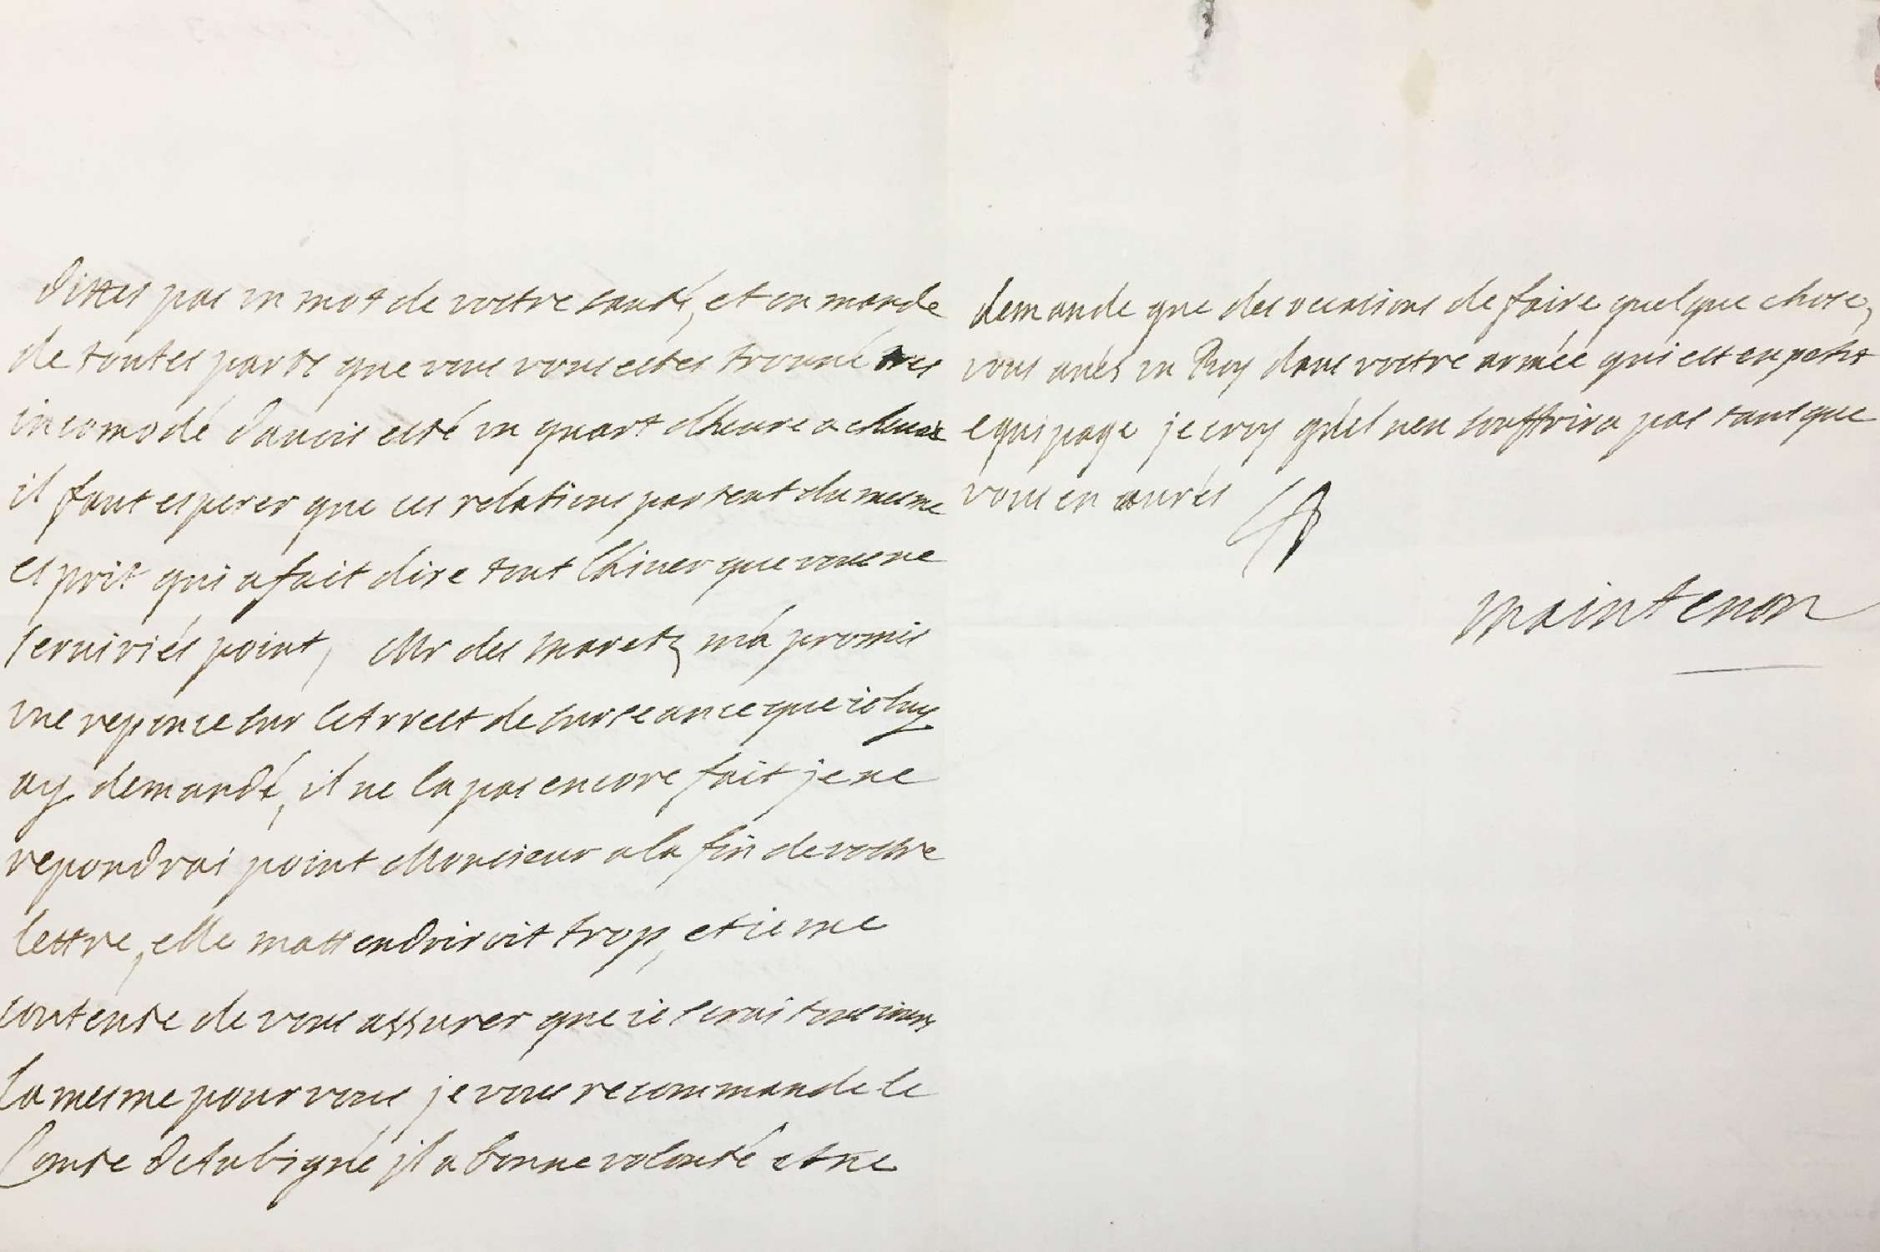 dittes pas un mot de vostre santé, et on mande
de toutes parts que vous vous estes trouvé tres
incomodé davoir esté un quart dheure a cheval
il faut esperer que ces relations partent du mesme
esprit qui a fait dire tout lhiver que vous ne
serviriés point, Mr des maretz ma promis
une reponce sur letArrest de surseance que ie luy
ay demandé, il ne la pas encore fait je ne
repondrai point Monsieur a la fin de vostre
lettre, elle mattendriroit trop, et ie me
contente de vous assurer que ie serai tousiours
la mesme pour vous, je vous recommande le
Comte Detubigné, jl a bonne volonté et ne
demande que des occasions de faire quelque chose,
vous avés un Roy dans vostre armée qui est en petit
equipage je croy qu'il nen souffrira pas tant que
vous en aurés
maintenon